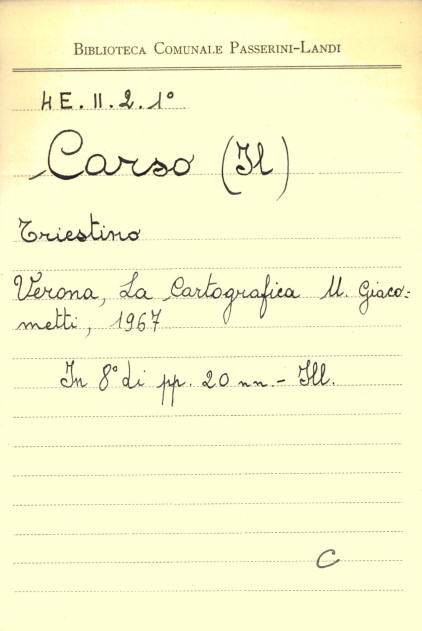 BIBLIOTECA COMUNALE PASSERINI-LANDI
4 E. II. 2. 1°
Carso (Il)
Triestino
Verona, La Cartografica M. Giaco=
metti, 1967
In 8° di pp. 20 nn. - Ill.
C